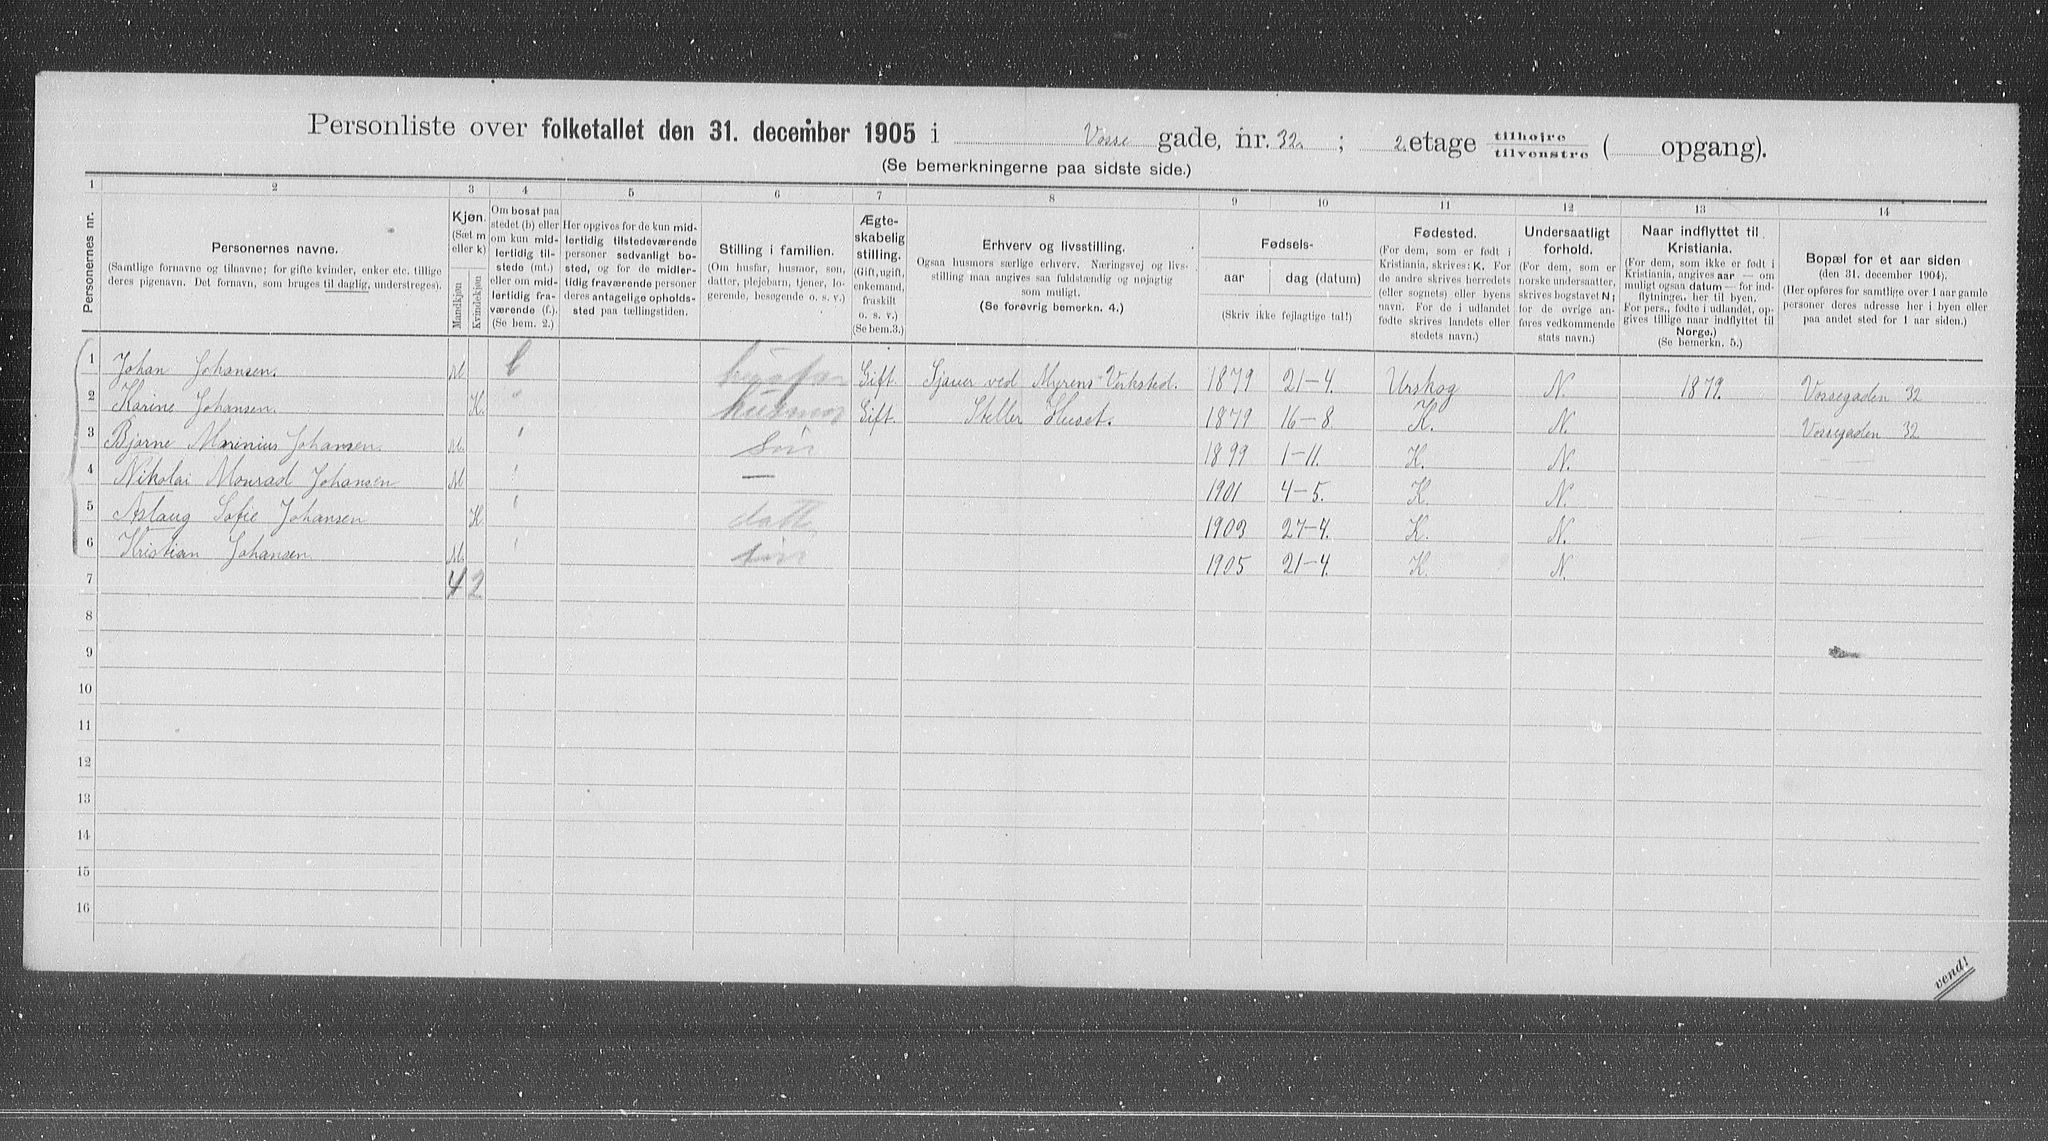 Personliste over folketallet den 31. december 1905 i Vosse gade, nr. 32. ; 2. etage tilhøjre tilvenstre ( opgang).
(Se bemerkningerne paa sidste side.)
1 2 3 4 5 6 7 8 9 10 11 12 13 14
Personernes nr.
Personernes navne.
(Samtlige fornavne og tilnavne; for gifte kvinder, enker etc. tillige
deres pigenavn. Det fornavn, som bruges til daglig, understreges).
Kjøn.
(Sæt m
eller k)
Mandkjøn
Kvindekjøn
Om bosat paa
stedet (b) eller
om kun mid-
lertidig til-
stede (mt.)
eller om mid-
lertidig fra-
værende (f.).
(Se bem. 2.)
Her opgives for de kun mid-
lertidig tilstedeværende
personer sedvanligt bo-
sted, og for de midler-
tidig fraværende personer
deres antagelige opholds-
sted paa tællingstiden.
Stilling i familien.
(Om husfar, husmor, søn,
datter, plejebarn, tjener, lo-
gerende, besøgende o. s. v.)
Ægte-
skabelig
stilling.
(Gift, ugift,
enkemand,
fraskilt
o. s. v.)
(Se bem.3.)
Erhverv og livsstilling.
Ogsaa husmors særlige erhverv. Næringsvej og livs-
stilling maa angives saa fuldstændig og nøjagtig
som muligt.
(Se forøvrig bemerkn. 4.)
Fødsels-
aar
dag (datum)
(Skriv ikke fejlagtige tal!)
Fødested.
(For dem, som er født i
Kristiania, skrives: K. For
de andre skrives herredets
(eller sognets) eller byens
navn. For de i udlandet
fødte skrives landets eller
stedets navn.)
Undersaatligt
forhold.
(For dem, som er
norske undersaatter,
skrives bogstavet N;
for de øvrige an-
føres vedkommende
stats navn.)
Naar indflyttet til
Kristiania.
(For dem, som ikke er født i
Kristiania, angives aar — om
muligt ogsaa datum — for ind-
flytningen her til byen.
For pers., fødte i udlandet, op-
gives tillige naar indflyttet til
Norge.)
(Se bemerkn. 5.)
Bopæl for et aar siden
(den 31. december 1904).
(Her opføres for samtlige over 1 aar gamle
personer deres adresse her i byen eller
paa andet sted for 1 aar siden.)
1 Johan Johansen. M. b husfar Gift. Sjauer ved Myrens Verksted. 1879 21-4. Urskog N. 1879. Vossegaden 32
2 Karine Johansen. K. " husmor Gift. Steller Huset. 1879 16-8. K. N. Vossegaden 32
3 Bjarne Marinius Johansen. M. " søn 1899 1-11. K. N. — —
4 Nikolai Monrad Johansen M. " — 1901 4-5. K. N. — —
5 Aslaug Sofie Johansen K " datter 1903 27-4. K. N. — —
6 Kristian Johansen M. " søn 1905 21-4. K. N.
7 4 2
8
9
10
11
12
13
14
15
16
vend!